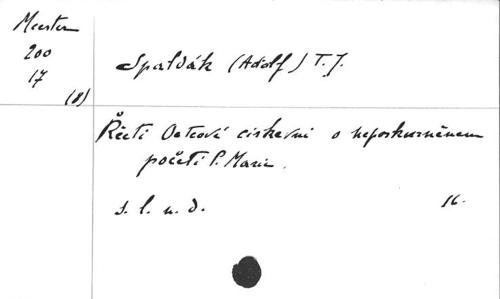 Meester
200
17
(8)
Spaldák (Adolf) T. J.
Řečtí Otcové církevní o neposkvrněném
početí P. Marie.
s. l. n. d. 16.